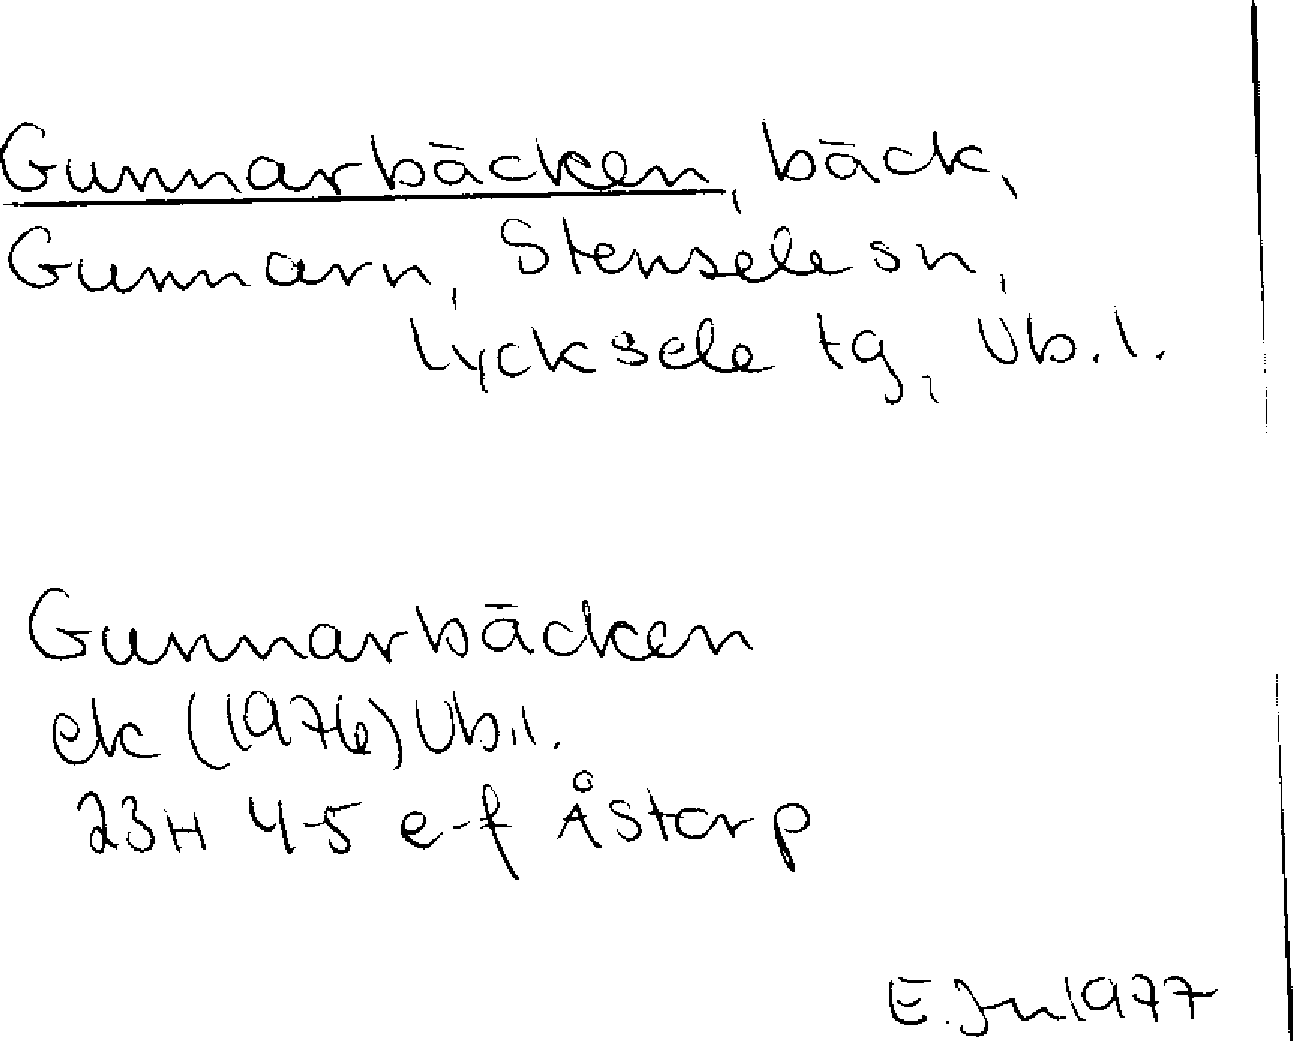 Gunnarbäcken, bäck,
Gunnarn, Stensele sn,
Lycksele tg, Vb. l.
Gunnarbäcken
ek (1976) Vb. l.
23H 4-5 e-f Åstorp
E. Jn 1977